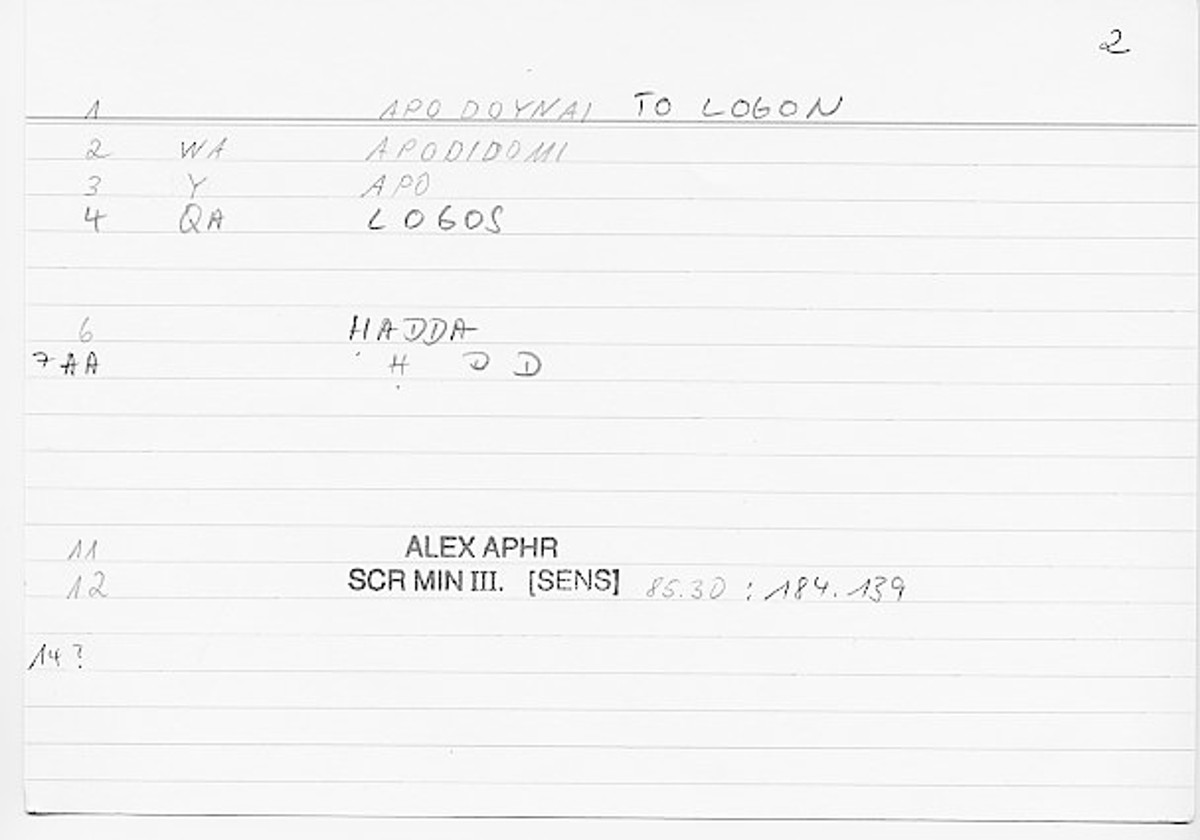 2
1 APODOYNAI TO LOGON
2 WA APODIDOMI
3 Y APO
4 QA LOGOS
6 HADDA
7 AA H D D
11 ALEX APHR
12 SCR MIN III. [SENS] 85.30 : 184.139
14?